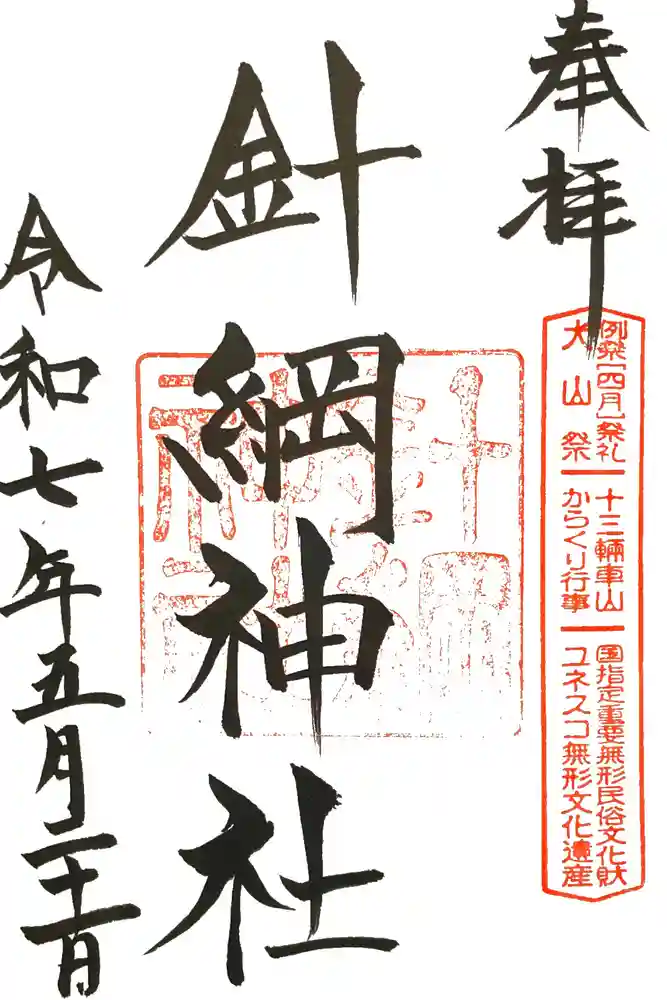 奉拝
例祭［四月］祭礼
犬山祭
十三輛車山
からくり行事
国指定重要無形民俗文化財
ユネスコ無形文化遺産
針綱神社
令和七年五月二十一日